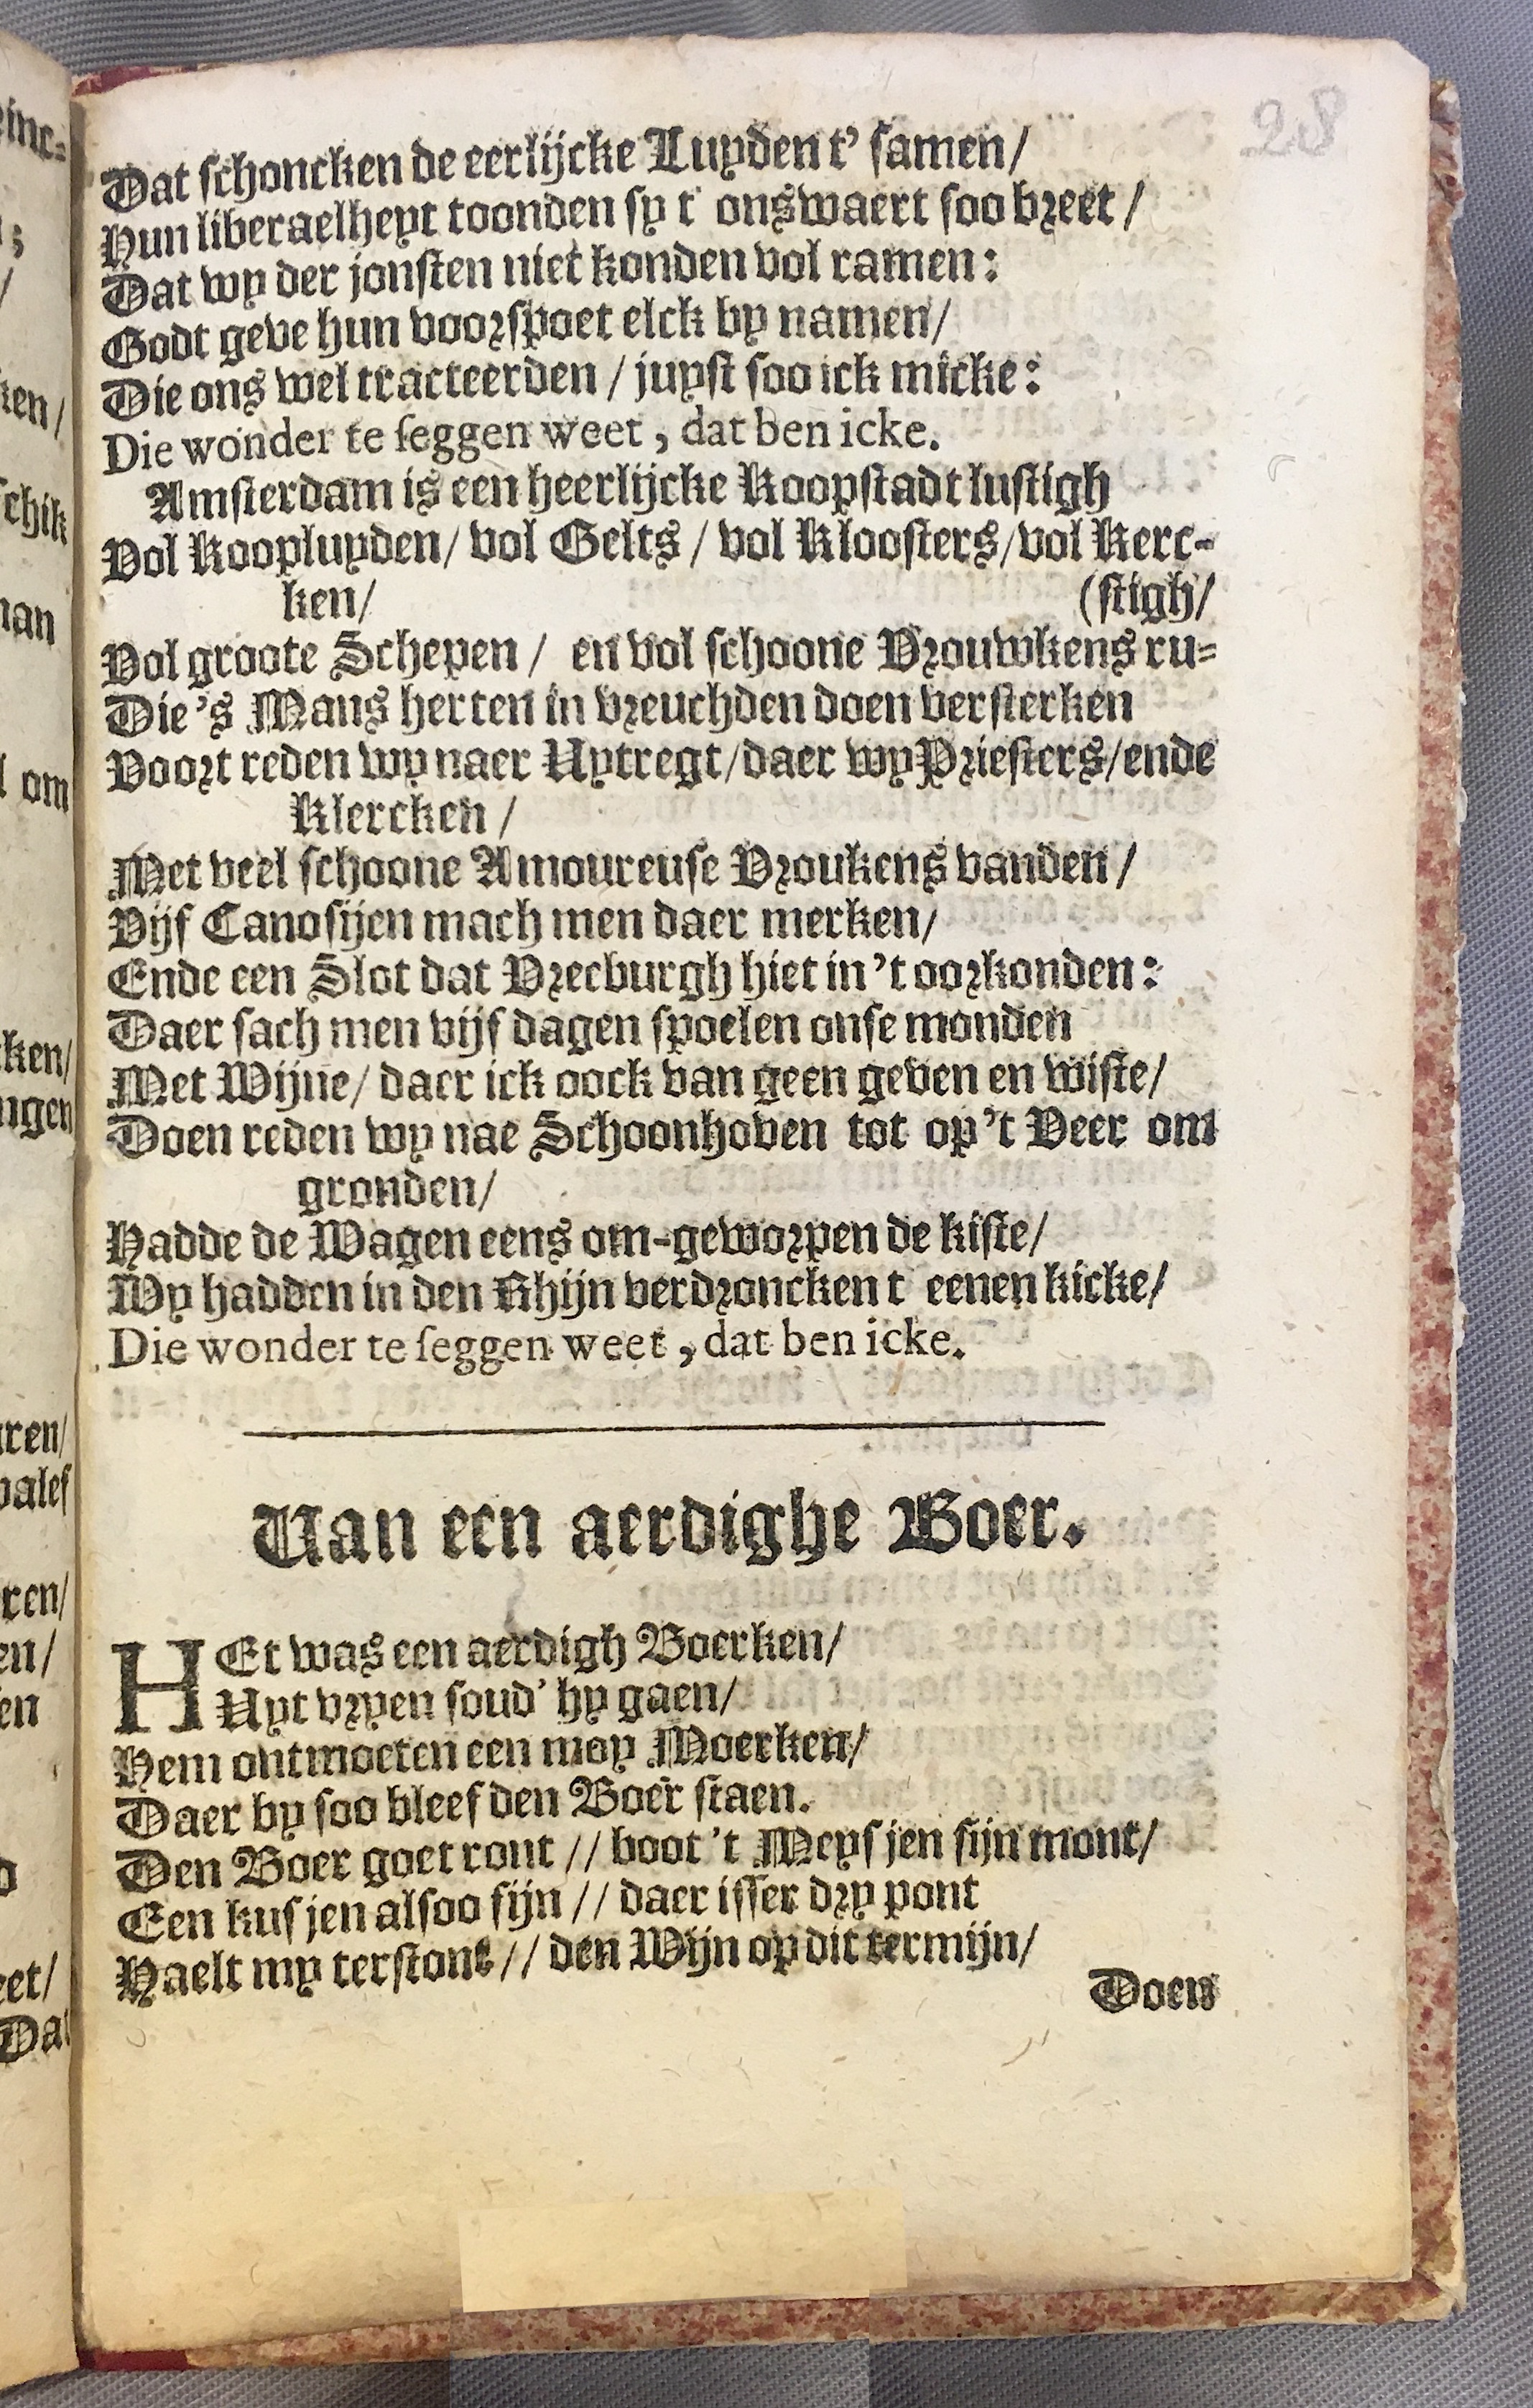 28
Dat schoncken de eerlijcke Luyden t' samen/
Hun liberaelheyt toonden sy t' onswaert soo breet/
Dat wy der jonsten niet konden vol ramen:
Godt geve hun voorspoet elck by namen/
Die ons wel tracteerden/ juyst soo ick micke:
Die wonder te seggen weet, dat ben icke.
Amsterdam is een heerlijcke Koopstadt lustigh
Vol Koopluyden/ vol Gelts/ vol Kloosters/ vol Kerc-
ken/ (stigh/
Vol groote Schepen/ en vol schoone Vrouwkens ru-
Die 's Mans herten in vreuchden doen versterken
Voort reden wy naer Uytregt/ daer wy Priesters/ ende
Klercken/
Met veel schoone Amoureuse Vroukens vanden/
Vijf Canosijen mach men daer merken/
Ende een Slot dat Vreeburgh hiet in 't oorkonden:
Daer sach men vijf dagen spoelen onse monden
Met Wijne/ daer ick oock van geen geven en wiste/
Doen reden wy nae Schoonhoven tot op 't Veer om
gronden/
Hadde de Wagen eens om-geworpen de kiste/
Wy hadden in den Rhijn verdroncken t eenen kicke/
Die wonder te seggen weet, dat ben icke.
Van een aerdighe Boer.
HEt was een aerdigh Boerken/
Uyt vryen soud' hy gaen/
Hem ontmoeten een moy Moerken/
Daer by soo bleef den Boer staen.
Den Boer goet ront // boot 't Meysjen sijn mont/
Een kusjen alsoo fijn // daer isser dry pont
Haelt my terstont // den Wijn op dit termijn/
Doen